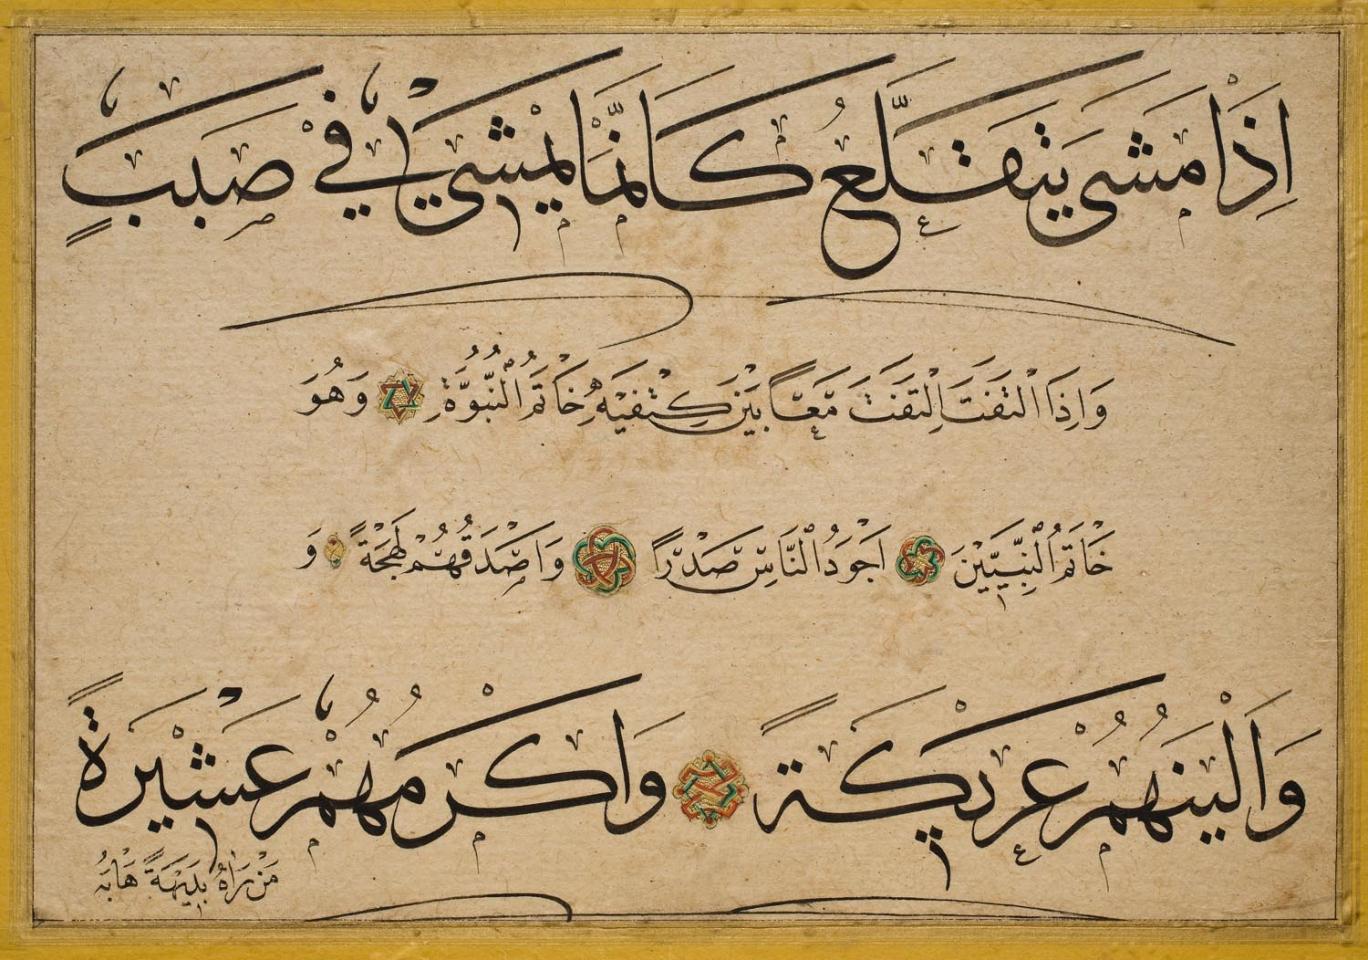 اِذَا مَشَى يَتَقَلَّعُ كَاَنَّمَا يَمْشِي فِي صَبَبٍ
وَاِذَا الْتَفَتَ اِلْتَفَتَ مَعًا بَيْنَ كَتِفَيْهِ خَاتَمُ النُّبُوَّةِ وَهُوَ
خَاتَمُ النَّبِيِّينَ اَجْوَدُ النَّاسِ صَدْرًا وَاَصْدَقُهُمْ لَهْجَةً وَ
وَاَلْيَنُهُمْ عَرِيكَةً وَاَكْرَمُهُمْ عَشِيرَةً
مَنْ رَاٰهُ بَدِيهَةً هَابَهُ